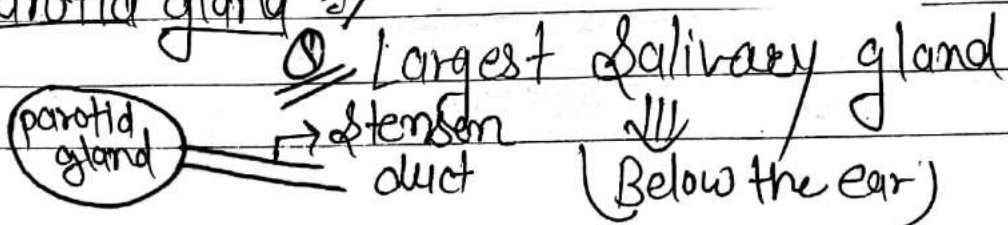 parotid gland
① Largest Salivary gland
parotid gland
Stensen duct
(Below the ear)